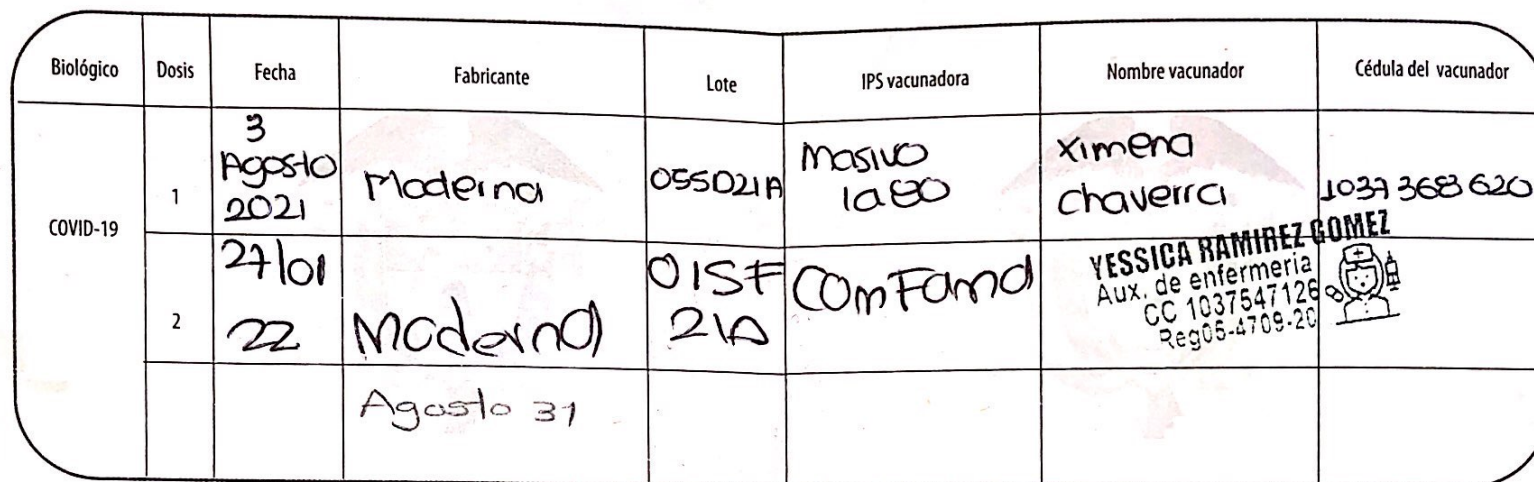 Biológico Dosis Fecha Fabricante Lote IPS vacunadora Nombre vacunador Cédula del vacunador
COVID-19
1
3
Agosto
2021
Moderna
055D21A
Masivo
la 80
Ximena
chaverra
1037 368 620
2
27/01
22
Moderna
015F
21A
ComFama
YESSICA RAMIREZ GOMEZ
Aux. de enfermeria
CC 1037547126
Reg05-4709-20
Agosto 31